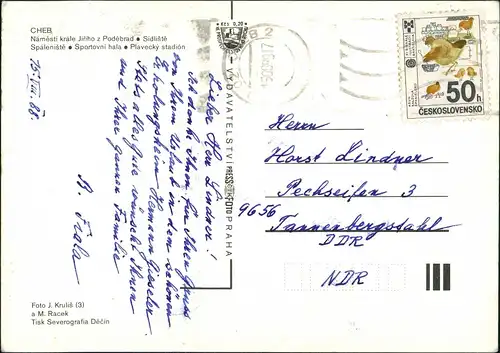 CHEB
Náměstí krále Jiřího z Poděbrad • Sídliště
Spáleniště • Sportovní hala • Plavecký stadión
15. VIII. 88.
Lieber Herr Lindner!
Ich danke Ihnen für Ihren Gruss
von Ihrem Urlaub in dem schönen
Erholungsheim Hermann
Stets alles gute wünscht Ihnen
und Ihrer ganzen Familie
B. Fiala
Foto J. Kruliš (3)
a M. Racek
Tisk Severografia Děčín
VYDAVATELSTVÍ PRESSFOTO PRAHA
Kčs 0,20
50h
ČESKOSLOVENSKO
Herrn
Horst Lindner
Pechseifen 3
9656 Tannenbergsthal
DDR
NDR